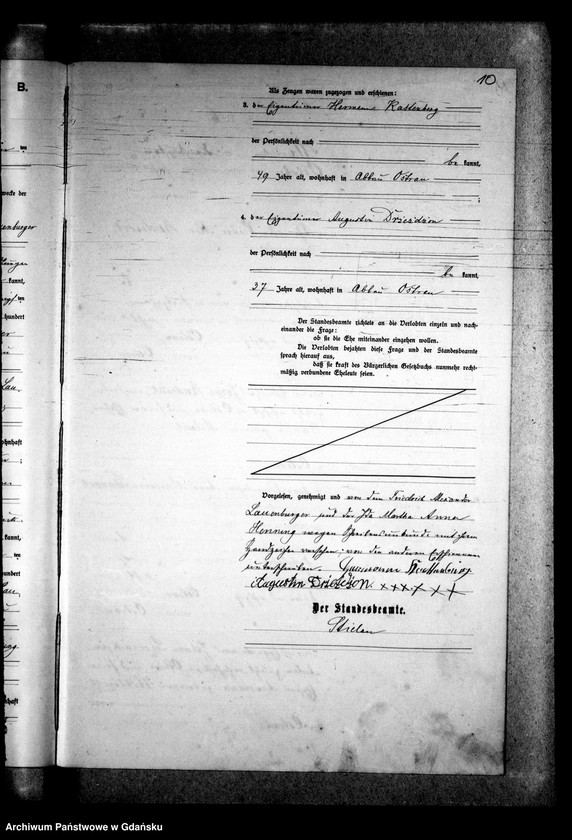 10
B.
Als Zeugen waren zugezogen und erschienen:
3. der Eigentümer Hermann Kattenberg
der Persönlichkeit nach
be kannt,
49 Jahre alt, wohnhaft in Abbau Ostrau
;
4. der Eigentümer Augustin Dziezdzon
der Persönlichkeit nach
be kannt,
27 Jahre alt, wohnhaft in Abbau Ostrau
Der Standesbeamte richtete an die Verlobten einzeln und nach-
einander die Frage:
ob sie die Ehe miteinander eingehen wollen.
Die Verlobten bejahten diese Frage und der Standesbeamte
sprach hierauf aus,
daß sie kraft des Bürgerlichen Gesetzbuchs nunmehr recht-
mäßig verbundene Eheleute seien.
Vorgelesen, genehmigt und von dem Friedrich Alexander
Lauenburger und der Ida Martha Anna
Henning wegen Schreibensunkunde mit ihren
Handzeichen versehen, von den anderen Erschienenen
unterschrieben.
Augustin xxx x x x
Der Standesbeamte.
Archiwum Państwowe w Gdańsku